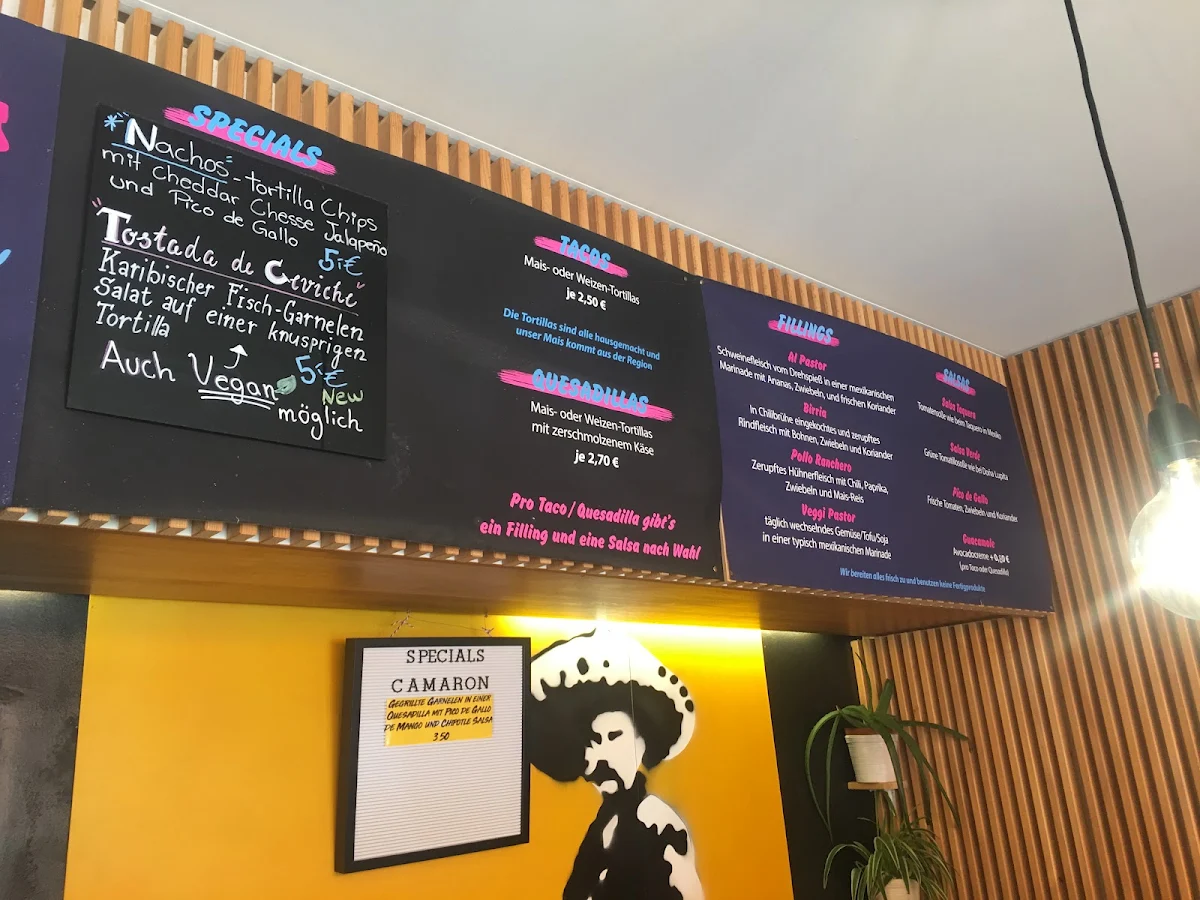 SPECIALS
Nachos - Tortilla Chips
mit Cheddar Chesse Jalapeño
und Pico de Gallo
5,-€
"Tostada de Ceviche"
Karibischer Fisch-Garnelen
Salat auf einer knusprigen
Tortilla
5,-€
Auch Vegan
New
möglich
TACOS
Mais- oder Weizen-Tortillas
je 2,50 €
Die Tortillas sind alle hausgemacht und
unser Mais kommt aus der Region
QUESADILLAS
Mais- oder Weizen-Tortillas
mit zerschmolzenem Käse
je 2,70 €
Pro Taco/Quesadilla gibt's
ein Filling und eine Salsa nach Wahl
FILLINGS
Al Pastor
Schweinefleisch vom Drehspieß in einer mexikanischen
Marinade mit Ananas, Zwiebeln, und frischen Koriander
Birria
In Chilibrühe eingekochtes und zerupftes
Rindfleisch mit Bohnen, Zwiebeln und Koriander
Pollo Ranchero
Zerupftes Hühnerfleisch mit Chili, Paprika,
Zwiebeln und Mais-Reis
Veggi Pastor
täglich wechselndes Gemüse/Tofu/Soja
in einer typisch mexikanischen Marinade
SALSAS
Salsa Taquera
Tomatensoße wie beim Taquero in Mexiko
Salsa Verde
Grüne Tomatillosoße wie bei Doña Lupita
Pico de Gallo
Frische Tomaten, Zwiebeln und Koriander
Guacamole
Avocadocreme +
(pro Taco oder Quesadilla)
Wir bereiten alles frisch zu und benutzen keine Fertigprodukte
SPECIALS
CAMARON
GEGRILLTE GARNELEN IN EINER
QUESADILLA MIT PICO DE GALLO
DE MANGO UND CHIPOTLE SALSA
3.50